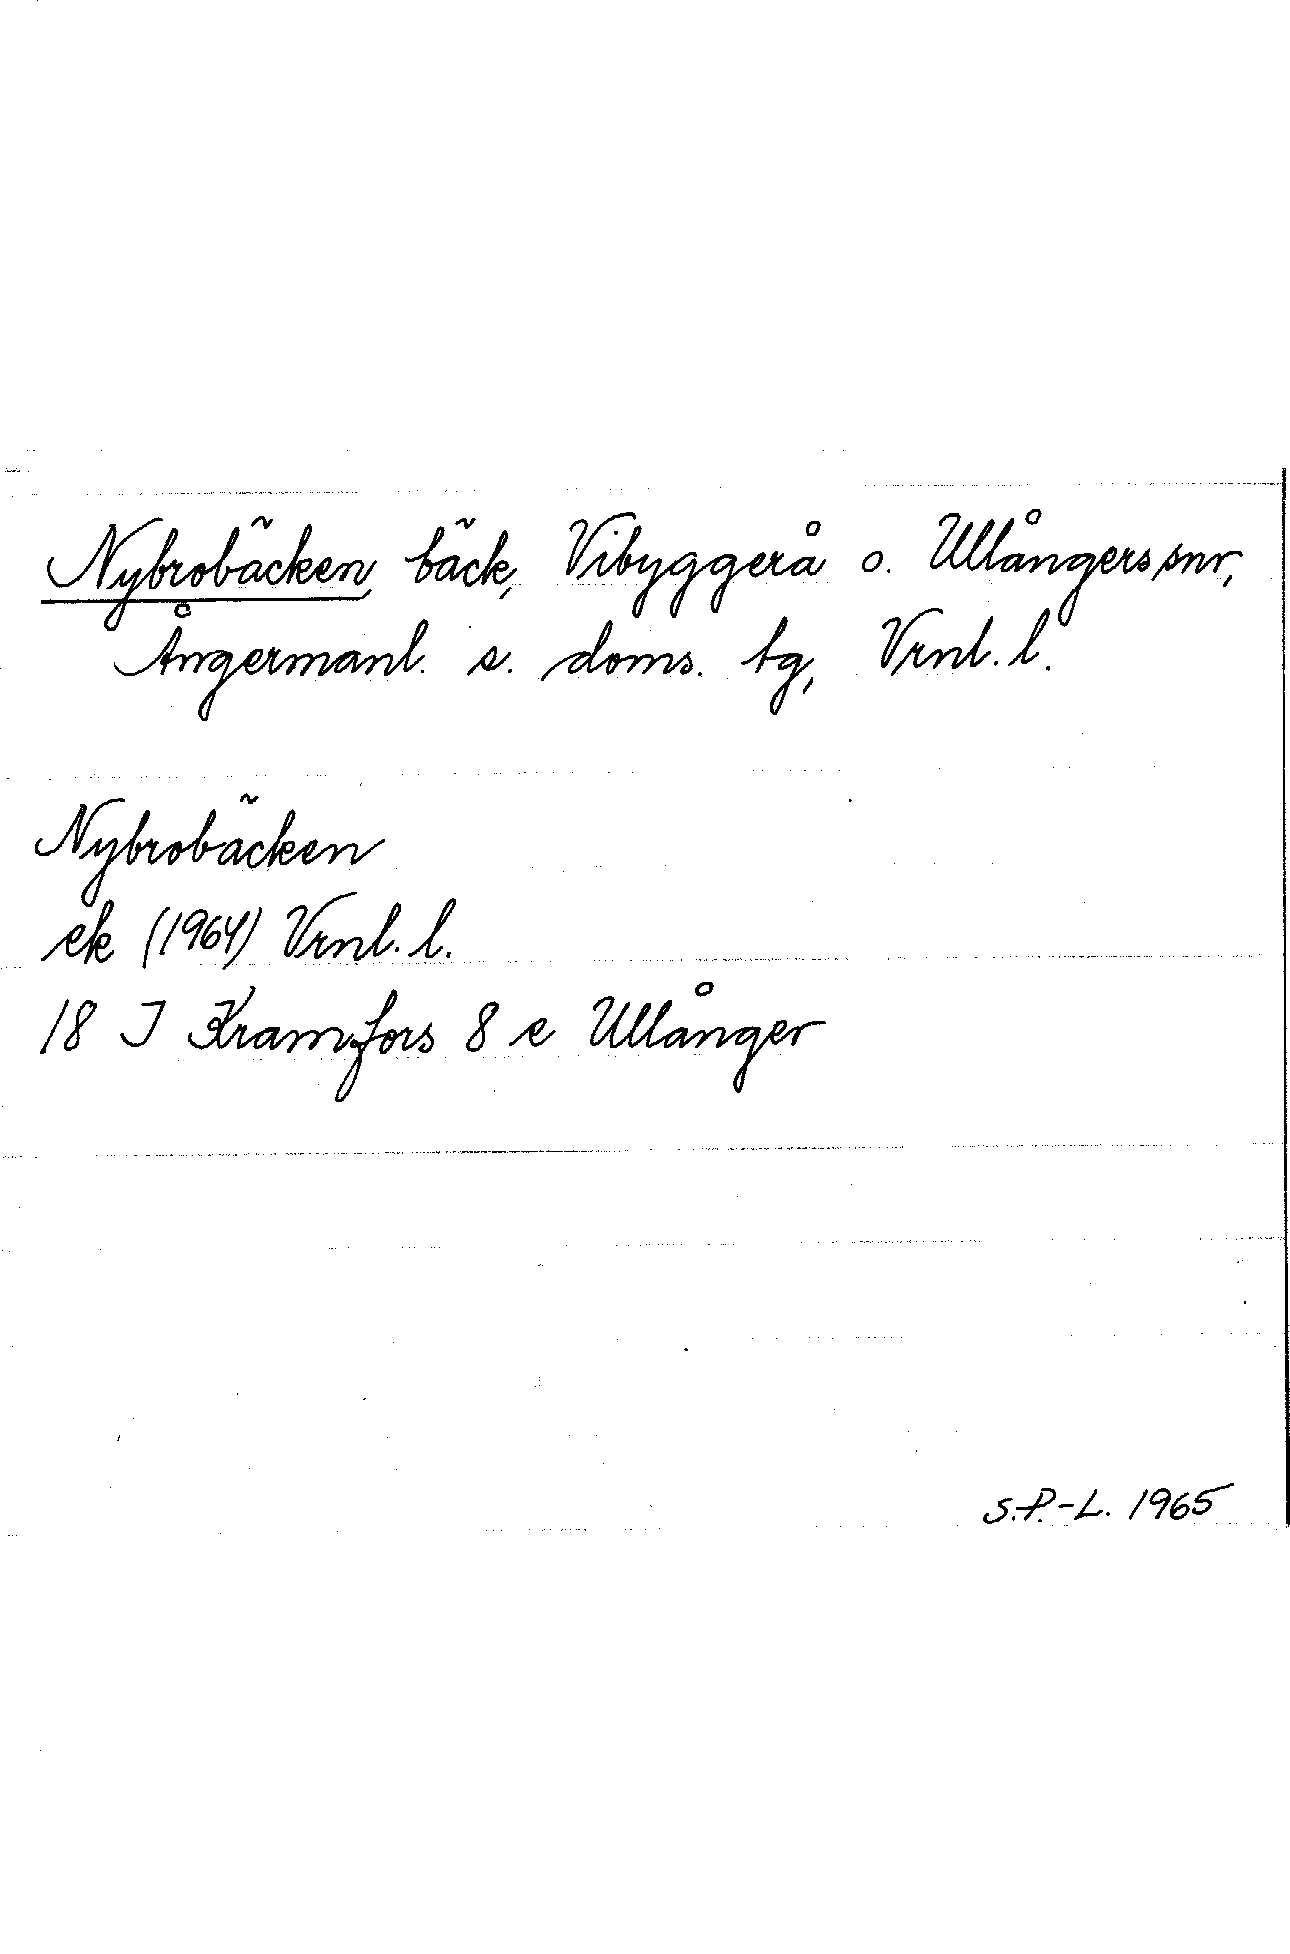 Nybrobäcken, bäck, Vibyggerå o. Ullångers snr,
Ångermanl. s. doms. tg, Vrnl. l.
Nybrobäcken
ek (1964) Vrnl. l.
18 I Kramfors 8 e Ullånger
S.P.-L. 1965